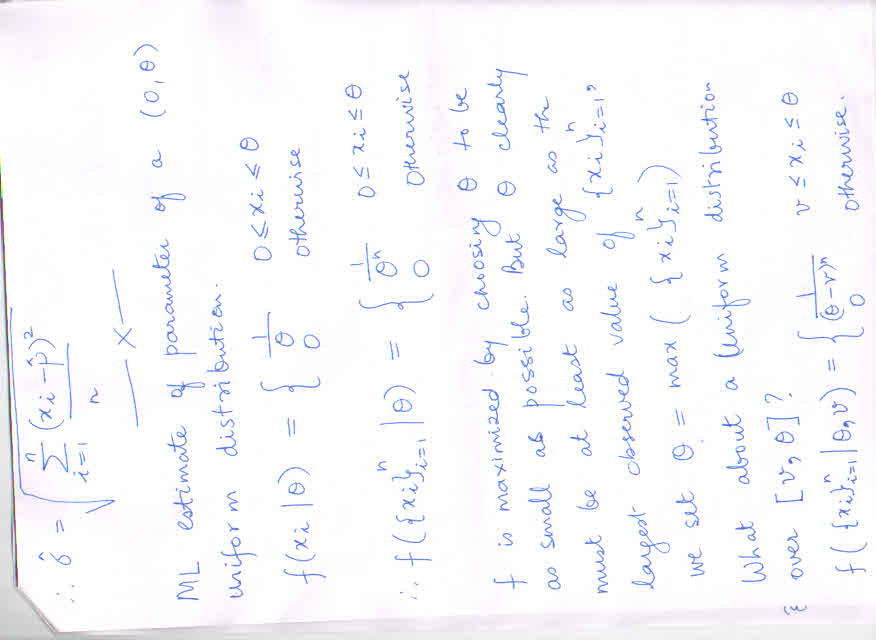 ∴ σ̂ = √( Σ_{i=1}^{n} (xi - p̂)² / n )
—— X ——
ML estimate of parameter of a (0, θ)
uniform distribution.
f(xi | θ) = { 1/θ 0 ≤ xi ≤ θ
0 otherwise
∴ f({xi}_{i=1}^{n} | θ) = { 1/θⁿ 0 ≤ xi ≤ θ
0 Otherwise
f is maximized by choosing θ to be
as small as possible. But θ clearly
must be at least as large as the
largest observed value of {xi}_{i=1}^{n},
we set θ = max ( {xi}_{i=1}^{n} )
What about a Uniform distribution
over [v, θ]?
f({xi}_{i=1}^{n} | θ, v) = { 1/(θ-v)ⁿ v ≤ xi ≤ θ
0 otherwise.